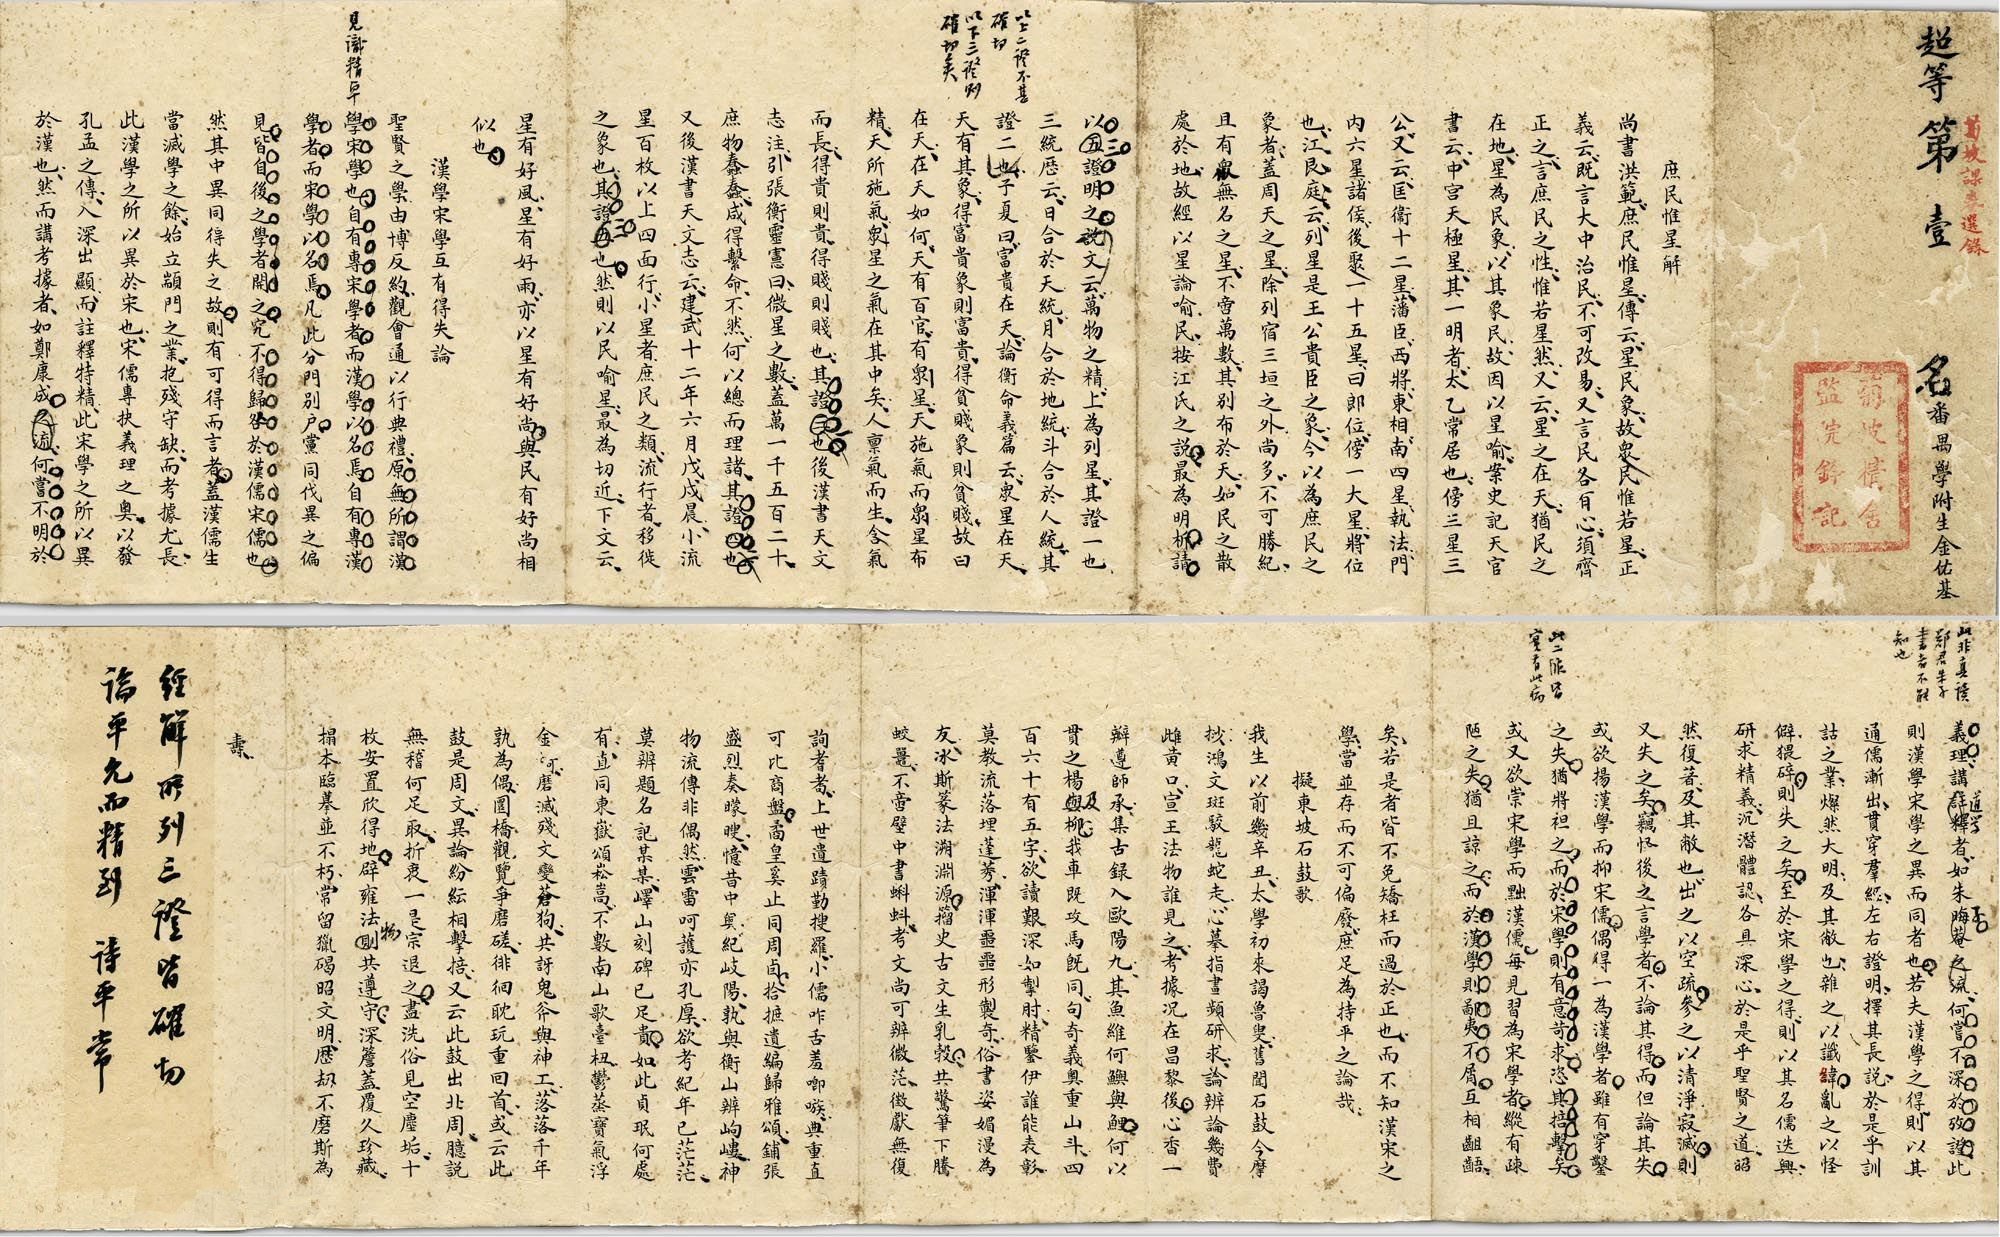 超等第壹名番禺學附生金佑基
菊坡課卷選錄
菊坡精舍
監院鈐記
庶民惟星解
尚書洪範庶民惟星傳云星民象故眾民惟若星正
義云既言大中治民不可改易又言民各有心須齊
正之言庶民之性惟若星然又云星之在天猶民之
在地星為民象以其象民故因以星喻案史記天官
書云中宮天極星其一明者太乙常居也傍三星三
公又云匡衛十二星藩臣西將東相南四星執法門
內六星諸侯後聚一十五星曰郎位傍一大星將位
也江艮庭云列星是王公貴臣之象今以為庶民之
象者蓋周天之星除列宿三垣之外尚多不可勝紀
且有眾無名之星不啻萬數其別布於天如民之散
處於地故經以星論喻民按江氏之說最為明析請
以五證明之說文云萬物之精上為列星其證一也
三
三統歷云日合於天統月合於地統斗合於人統其
證二也子夏曰富貴在天論衡命義篇云眾星在天
以上二證不甚
確切
以下三證則
確切矣
天有其象得富貴象則富貴得貧賤象則貧賤故曰
在天在天如何天有百官有眾星天施氣而眾星布
精天所施氣眾星之氣在其中矣人稟氣而生含氣
而長得貴則貴得賤則賤也其證三也後漢書天文
一
志注引張衡靈憲曰微星之數蓋萬一千五百二十
庶物蠢蠢咸得繫命不然何以總而理諸其證四也
二
又後漢書天文志云建武十二年六月戊戌晨小流
星百枚以上四面行小星者庶民之類流行者移徙
之象也其證五也然則以民喻星最為切近下文云
三
星有好風星有好雨亦以星有好尚與民有好尚相
似也
漢學宋學互有得失論
聖賢之學由博反約觀會通以行典禮原無所謂漢
學宋學也自有專宋學者而漢學以名焉自有專漢
見識精卓
學者而宋學以名焉凡此分門別戶黨同伐異之偏
見皆自後之學者開之究不得歸咎於漢儒宋儒也
然其中異同得失之故則有可得而言者蓋漢儒生
當滅學之餘始立顓門之業抱殘守缺而考據尤長
此漢學之所以異於宋也宋儒專抉義理之奧以發
孔孟之傳入深出顯而註釋特精此宋學之所以異
於漢也然而講考據者如鄭康成之流何嘗不明於
義理講詳釋者如朱晦菴之流何嘗不深於攷證此
道學
此非真讀
鄭君朱子
書者不能
知也
則漢學宋學之異而同者也若夫漢學之得則以其
通儒漸出貫穿羣經左右證明擇其長說於是乎訓
詁之業燦然大明及其敝也雜之以讖緯亂之以怪
僻猥碎則失之矣至於宋學之得則以其名儒迭興
研求精義沉潛體認各具深心於是乎聖賢之道昭
然復著及其敝也出之以空疏參之以清淨寂滅則
又失之矣竊怪後之言學者不論其得而但論其失
或欲揚漢學而抑宋儒偶得一為漢學者雖有穿鑿
之失猶將袒之而於宋學則有意苛求恣其掊擊矣
此二派皆
實有此病
或又欲崇宋學而黜漢儒每見習為宋學者縱有疎
陋之失猶且諒之而於漢學則鄙夷不屑互相齟齬
矣若是者皆不免矯枉而過於正也而不知漢宋之
學當並存而不可偏廢庶足為持平之論哉
擬東坡石鼓歌
我生以前幾辛丑太學初來謁魯叟舊聞石鼓今摩
挱鴻文斑駁龍蛇走心摹指畫頻研求論辨論幾費
雌黃口宣王法物誰見之考據況在昌黎後心香一
瓣遵師承集古錄入歐陽九其魚維何鱮與鯉何以
貫之楊與柳我車既攻馬既同句奇義奧重山斗四
及
百六十有五字欲讀艱深如掣肘精鑒伊誰能表彰
莫教流落埋蓬蒡渾渾噩噩形製奇俗書姿媚漫為
友冰斯篆法溯淵源籀史古文生乳穀共驚筆下騰
蛟鼉不啻壁中書蝌蚪考文尚可辨微茫徵獻無復
詢耆耇上世遺蹟勤搜羅小儒咋舌羞唧喉典重直
可比商盤矞皇奚止同周卣拾摭遺編歸雅頌鋪張
盛烈奏矇瞍憶昔中興紀岐陽孰與衡山辨岣嶁神
物流傳非偶然雲雷呵護亦孔厚欲考紀年已茫茫
莫辨題名記某某嶧山刻碑已足貴如此貞珉何處
有直同東嶽頌崧嵩不數南山歌臺杻鬱蒸寶氣浮
金可磨滅殘文變蒼狗共訝鬼斧與神工落落千年
孰為偶圜橋觀覽爭磨磋徘徊耽玩重回首或云此
鼓是周文異論紛紜相擊掊又云此鼓出北周臆說
無稽何足取折衷一是宗退之盡洗俗見空塵垢十
枚安置欣得地辟雍法則共遵守深簷蓋覆久珍藏
物
搨本臨摹並不朽常留獵碣昭文明歷劫不磨斯為
壽
經解所列三證皆確切
論平允而精到 詩平常